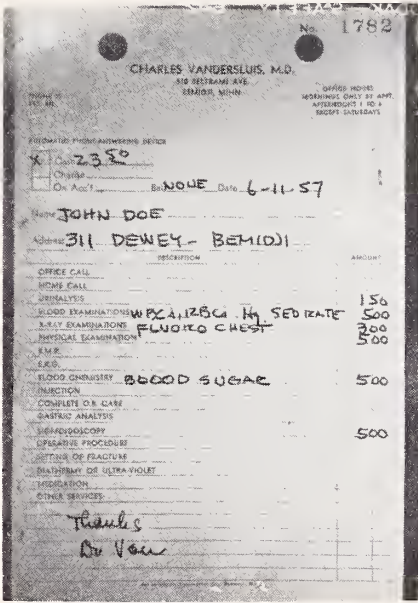 No. 1782
CHARLES VANDERSLUIS, M.D.
BELTRAMI AVE.
BEMIDJI, MINN.
OFFICE HOURS
MORNINGS ONLY BY APPT.
AFTERNOONS 1 TO 4
EXCEPT SATURDAYS
AUTOMATED PHONE ANSWERING DEVICE
X Cash 23.50
Charge
On Acc't Bal NONE Date 6-11-57
Name JOHN DOE
Address 311 DEWEY - BEMIDJI
DESCRIPTION AMOUNT
OFFICE CALL
HOME CALL
URINALYSIS 150
BLOOD EXAMINATIONS WBC, RBC, Hg SED RATE 500
X-RAY EXAMINATIONS FLUORO CHEST 300
PHYSICAL EXAMINATION 500
B.M.R.
E.K.G.
BLOOD CHEMISTRY BLOOD SUGAR 500
INJECTION
COMPLETE O.B. CARE
GASTRIC ANALYSIS
SIGMOIDOSCOPY 500
OPERATIVE PROCEDURE
SETTING OF FRACTURE
DIATHERMY OR ULTRA-VIOLET
MEDICATION
OTHER SERVICES
Thanks
Dr Van